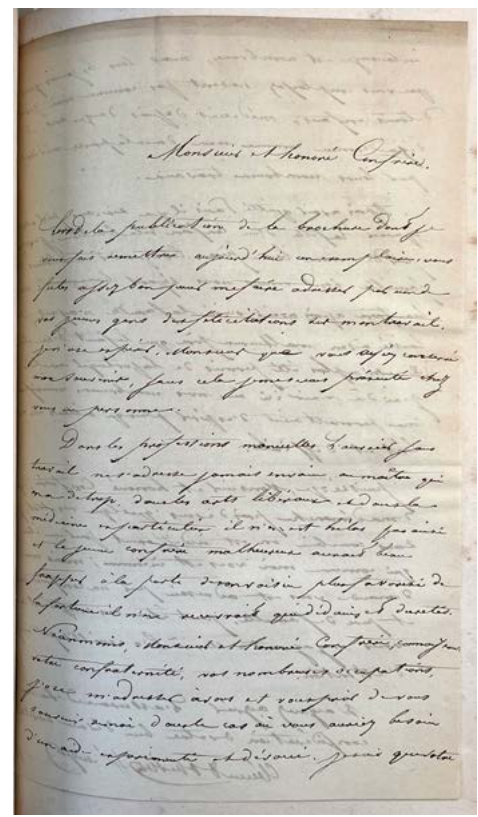 Monsieur et honoré Confrère.
Lors de la publication de la brochure dont je
vous fais remettre aujourd'hui un exemplaire, vous
fûtes assez bon pour me faire adresser par un de
vos jeunes gens des félicitations sur mon travail.
j'ose espérer, Monsieur que vous conservé
mon souvenir, sans cela je me présenté chez
vous en personne.
Dans les professions manuelles l'ouvrier sans
travail ne s'adresse jamais en vain au maître qui
en a de trop. dans les arts libéraux et dans la
médecine en particulier il n'en est hélas pas ainsi
et le jeune confrère malheureux aurait beau
frapper à la porte d'un voisin plus favorisé de
la fortune il n'en recevrait que dédains et duretés.
Néanmoins, Monsieur et honoré Confrère,
votre confraternité, vos nombreuses occupations,
j'ose m'adresser à vous et vous prier de vous
souvenir de moi dans le cas où vous auriez besoin
d'un aide expérimenté et dévoué. que votre